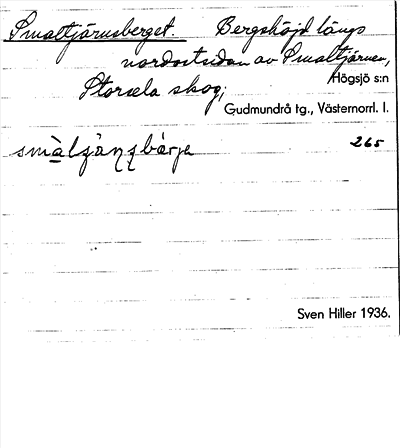 Smaltjärnsberget. Bergshöjd längs
nordostsidan av Smaltjärnen,
Högsjö s:n
Storsela skog,
Gudmundrå tg., Västernorrl. l.
265
Sven Hiller 1936.